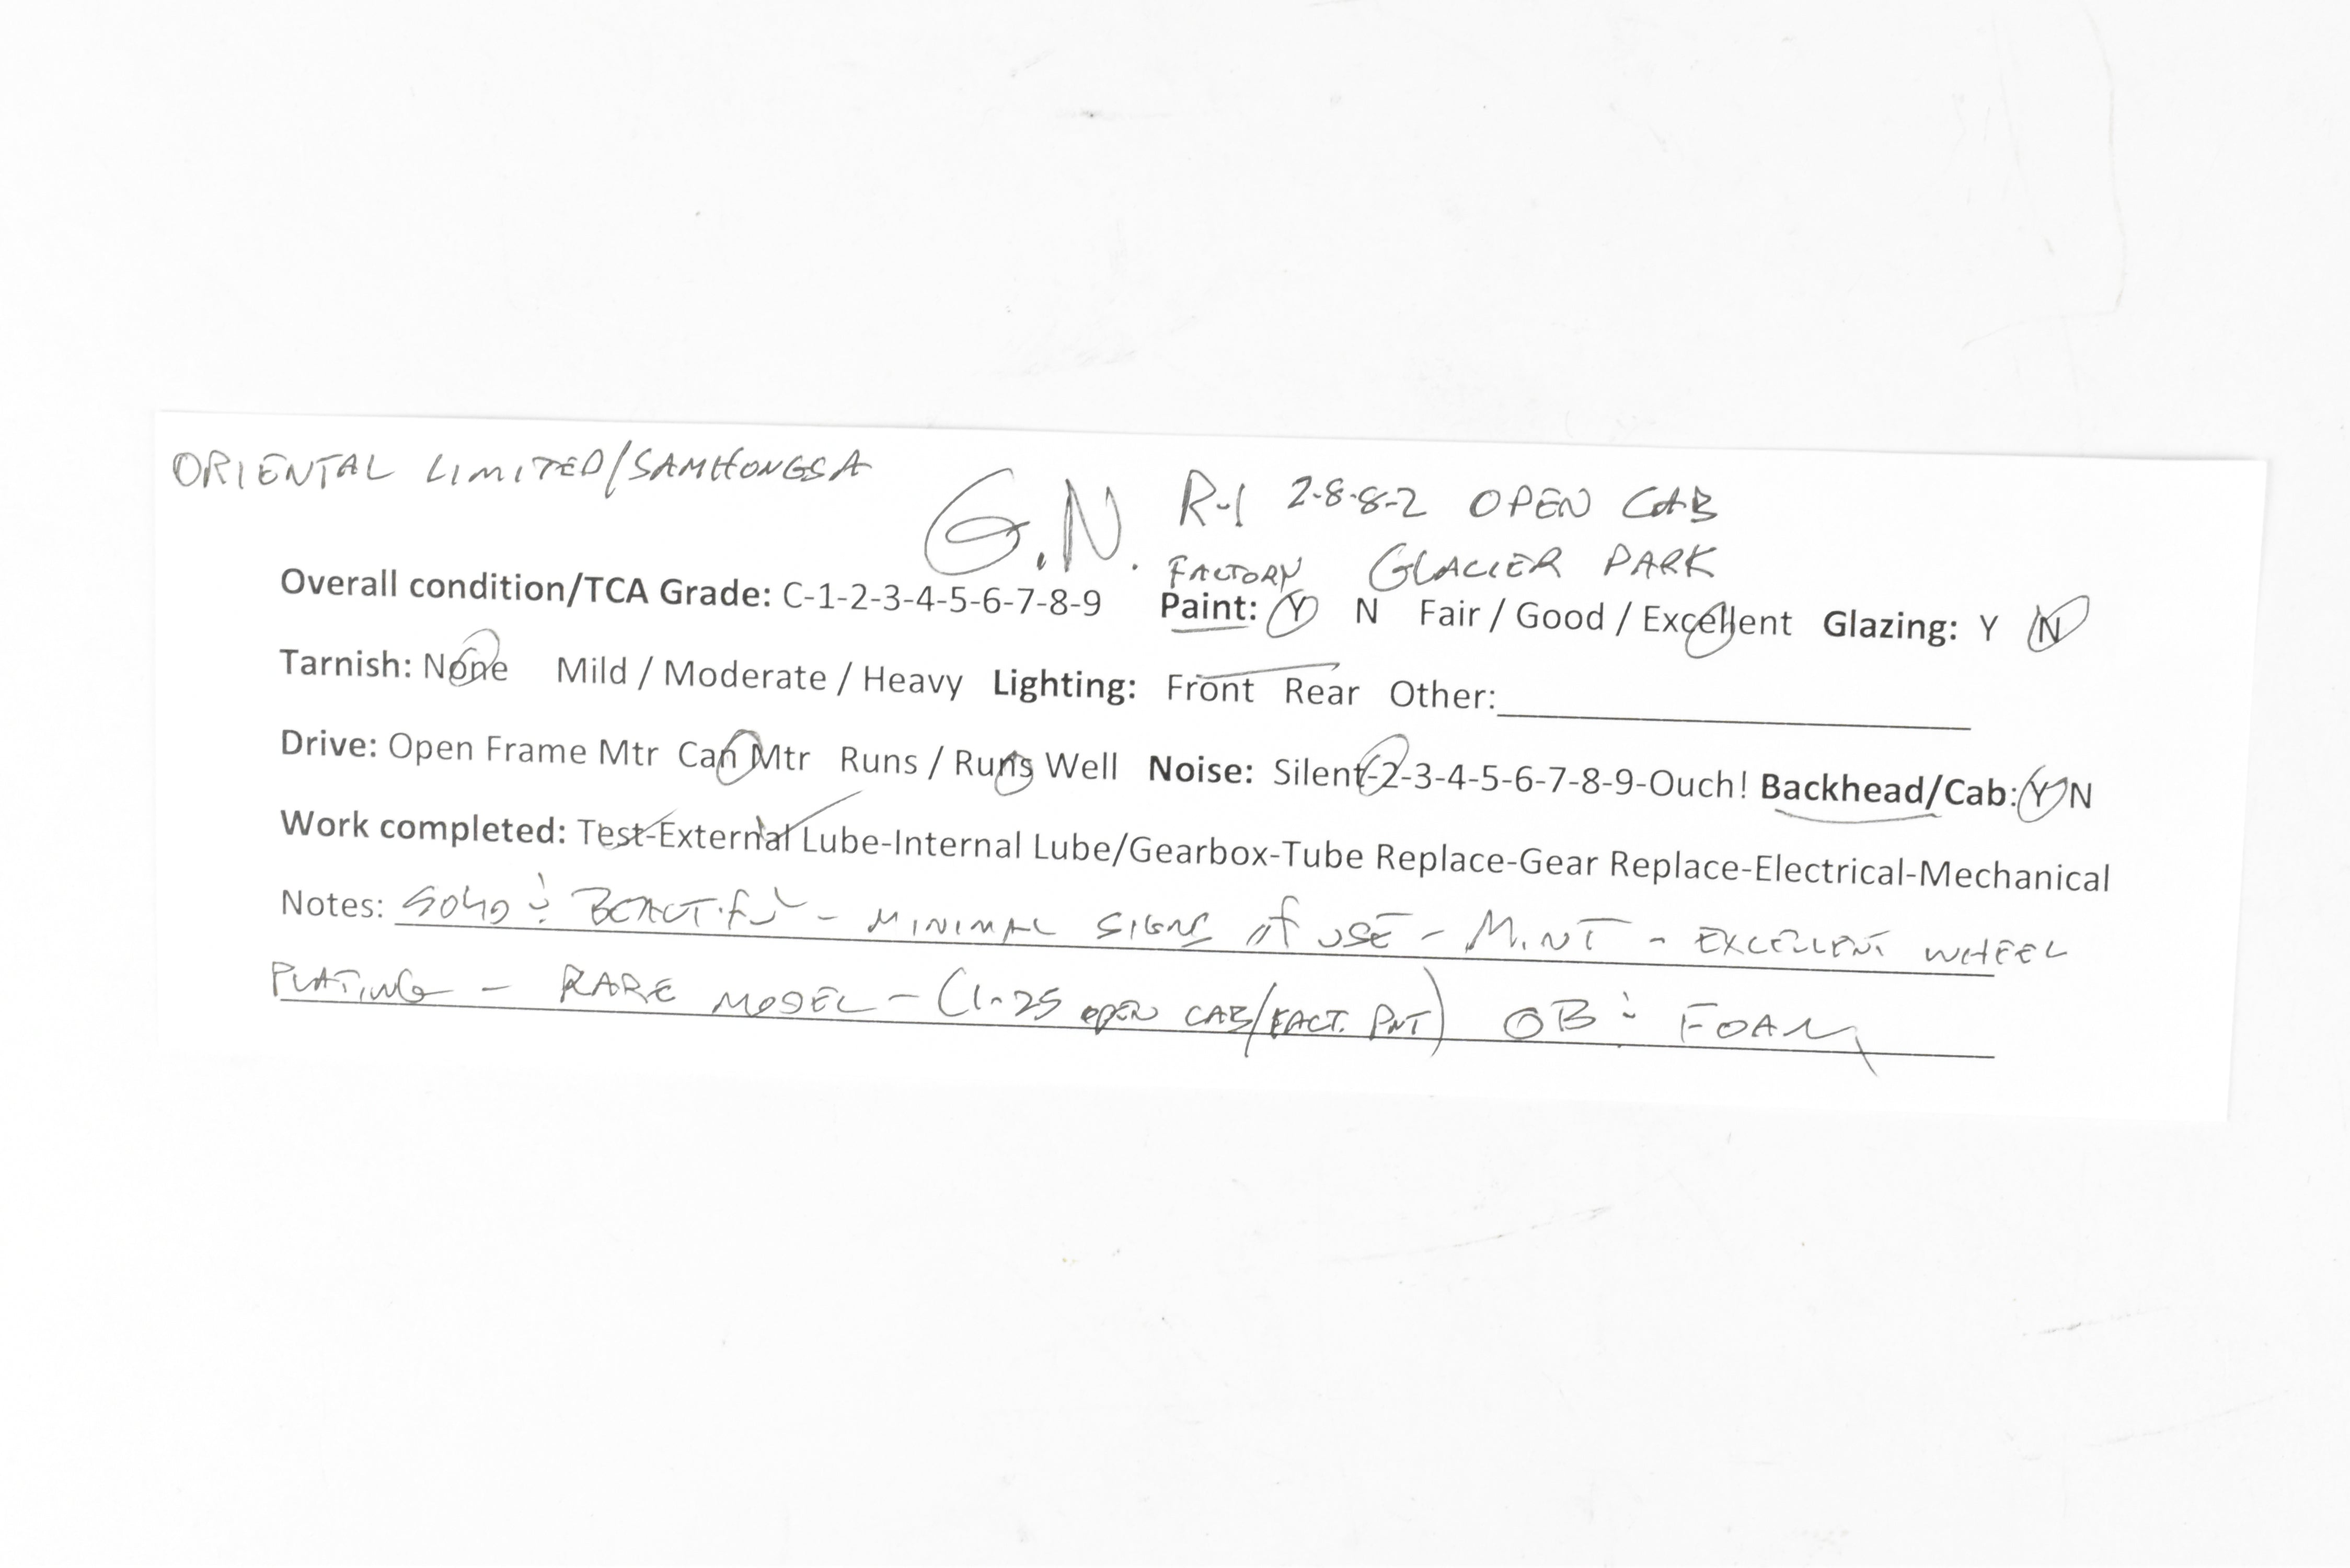 ORIENTAL LIMITED/SAMHONGSA
G.N. R-1 2-8-8-2 OPEN CAB
FACTORY GLACIER PARK
Overall condition/TCA Grade: C-1-2-3-4-5-6-7-8-9 Paint: Y N Fair / Good / Excellent Glazing: Y N
Tarnish: None Mild / Moderate / Heavy Lighting: Front Rear Other:
Drive: Open Frame Mtr Can Mtr Runs / Runs Well Noise: Silent-2-3-4-5-6-7-8-9-Ouch! Backhead/Cab: Y N
Work completed: Test-External Lube-Internal Lube/Gearbox-Tube Replace-Gear Replace-Electrical-Mechanical
Notes: SOLID & BEAUTIFUL - MINIMAL SIGNS of USE - MINT - EXCELLENT WHEEL
PLATING - RARE MODEL - (1-25 OPEN CAB/FACT. PNT) OB & FOAM